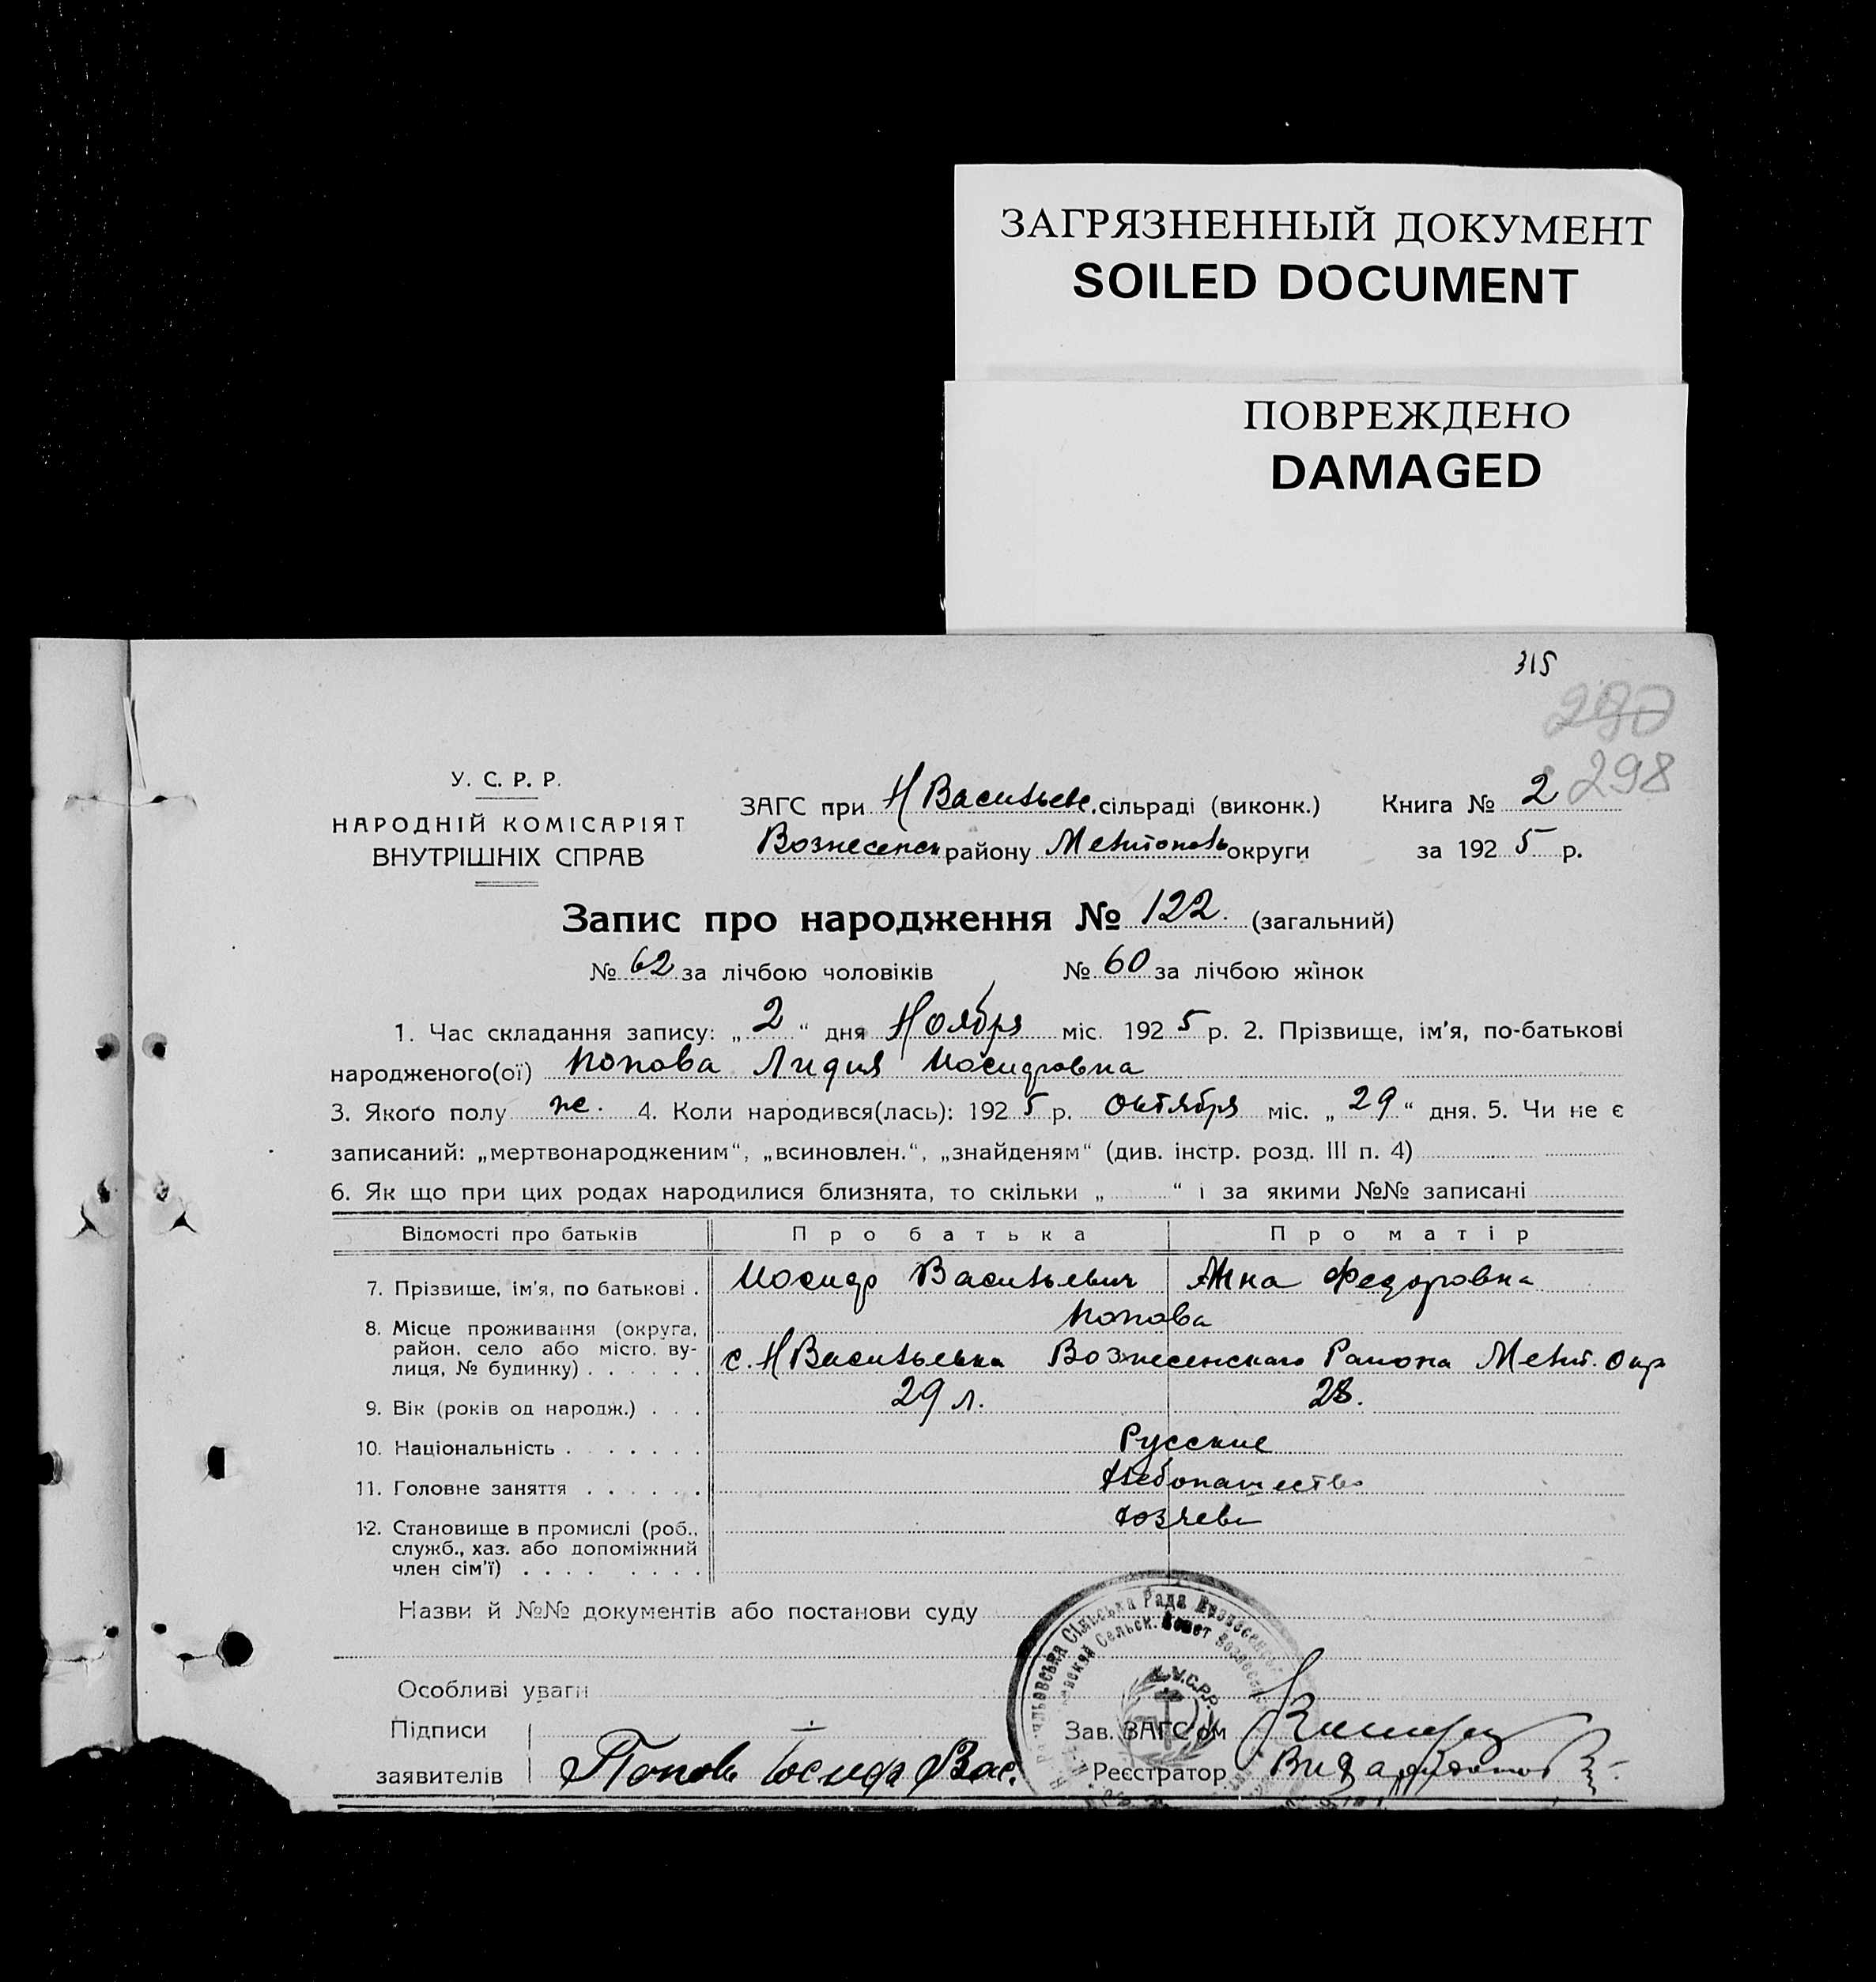 ЗАГРЯЗНЕННЫЙ ДОКУМЕНТ
SOILED DOCUMENT
ПОВРЕЖДЕНО
DAMAGED
315
298
У. С. Р. Р.
НАРОДНІЙ КОМІСАРІЯТ
ВНУТРІШНІХ СПРАВ
ЗАГС при Н Васильев. сільраді (виконк.) Книга № 2
Вознесенск району Мелитоповь округи за 1925 р.
Запис про народження № 122. (загальний)
№ 62 за лічбою чоловіків № 60 за лічбою жінок
1. Час складання запису: „2“ дня Ноября міс. 1925 р. 2. Прізвище, ім'я, по-батькові
народженого(ої) Попова Лидия Иосифовна
3. Якого полу же. 4. Коли народився(лась): 1925 р. Октября міс. „29“ дня. 5. Чи не є
записаний: „мертвонародженим“, „всиновлен.“, „знайденям“ (див. інстр. розд. III п. 4)
6. Як що при цих родах народилися близнята, то скільки „ “ і за якими №№ записані
Відомості про батьків Про батька Про матір
7. Прізвище, ім'я, по батькові . Иосиф Васильевич Анна Федоровна
Попова
8. Місце проживання (округа,
район, село або місто, ву-
лиця, № будинку) . . . . . . с. Н Васильевка Вознесенскаго Района Мелит. Окр
9. Вік (років од народж.) . . . 29 л. 28.
10. Національність . . . . . . . Русские
11. Головне заняття . . . . . . Хлебопашество
12. Становище в промислі (роб.,
служб., хаз. або допоміжний
член сім'ї) . . . . . . . . Хозяева
Назви й №№ документів або постанови суду
Особливі уваги
Підписи
заявителів Попов Іосиф Вас.
Зав. ЗАГС'ом
Реєстратор
Сільська Рада
Сельск. Совет
У.С.Р.Р.